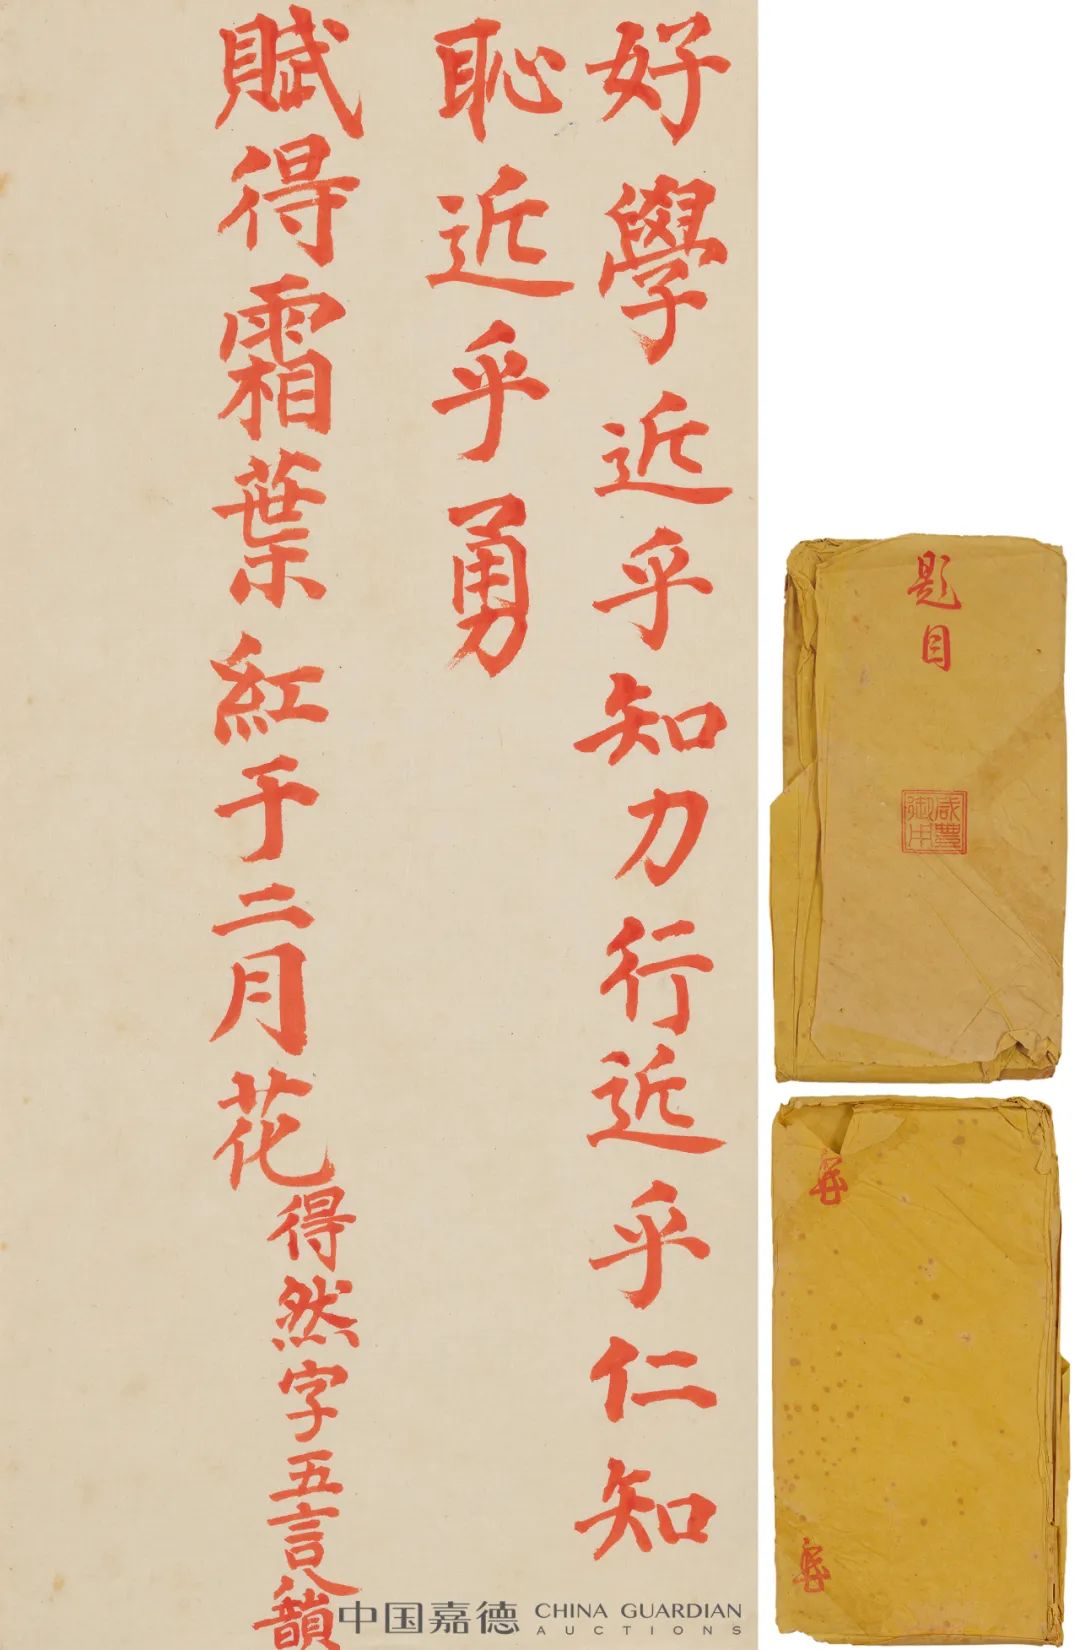 好學近乎知力行近乎仁知
恥近乎勇
賦得霜葉紅于二月花得然字五言八韻
題目
咸豐
御用
中国嘉德 CHINA GUARDIAN
AUCTIONS